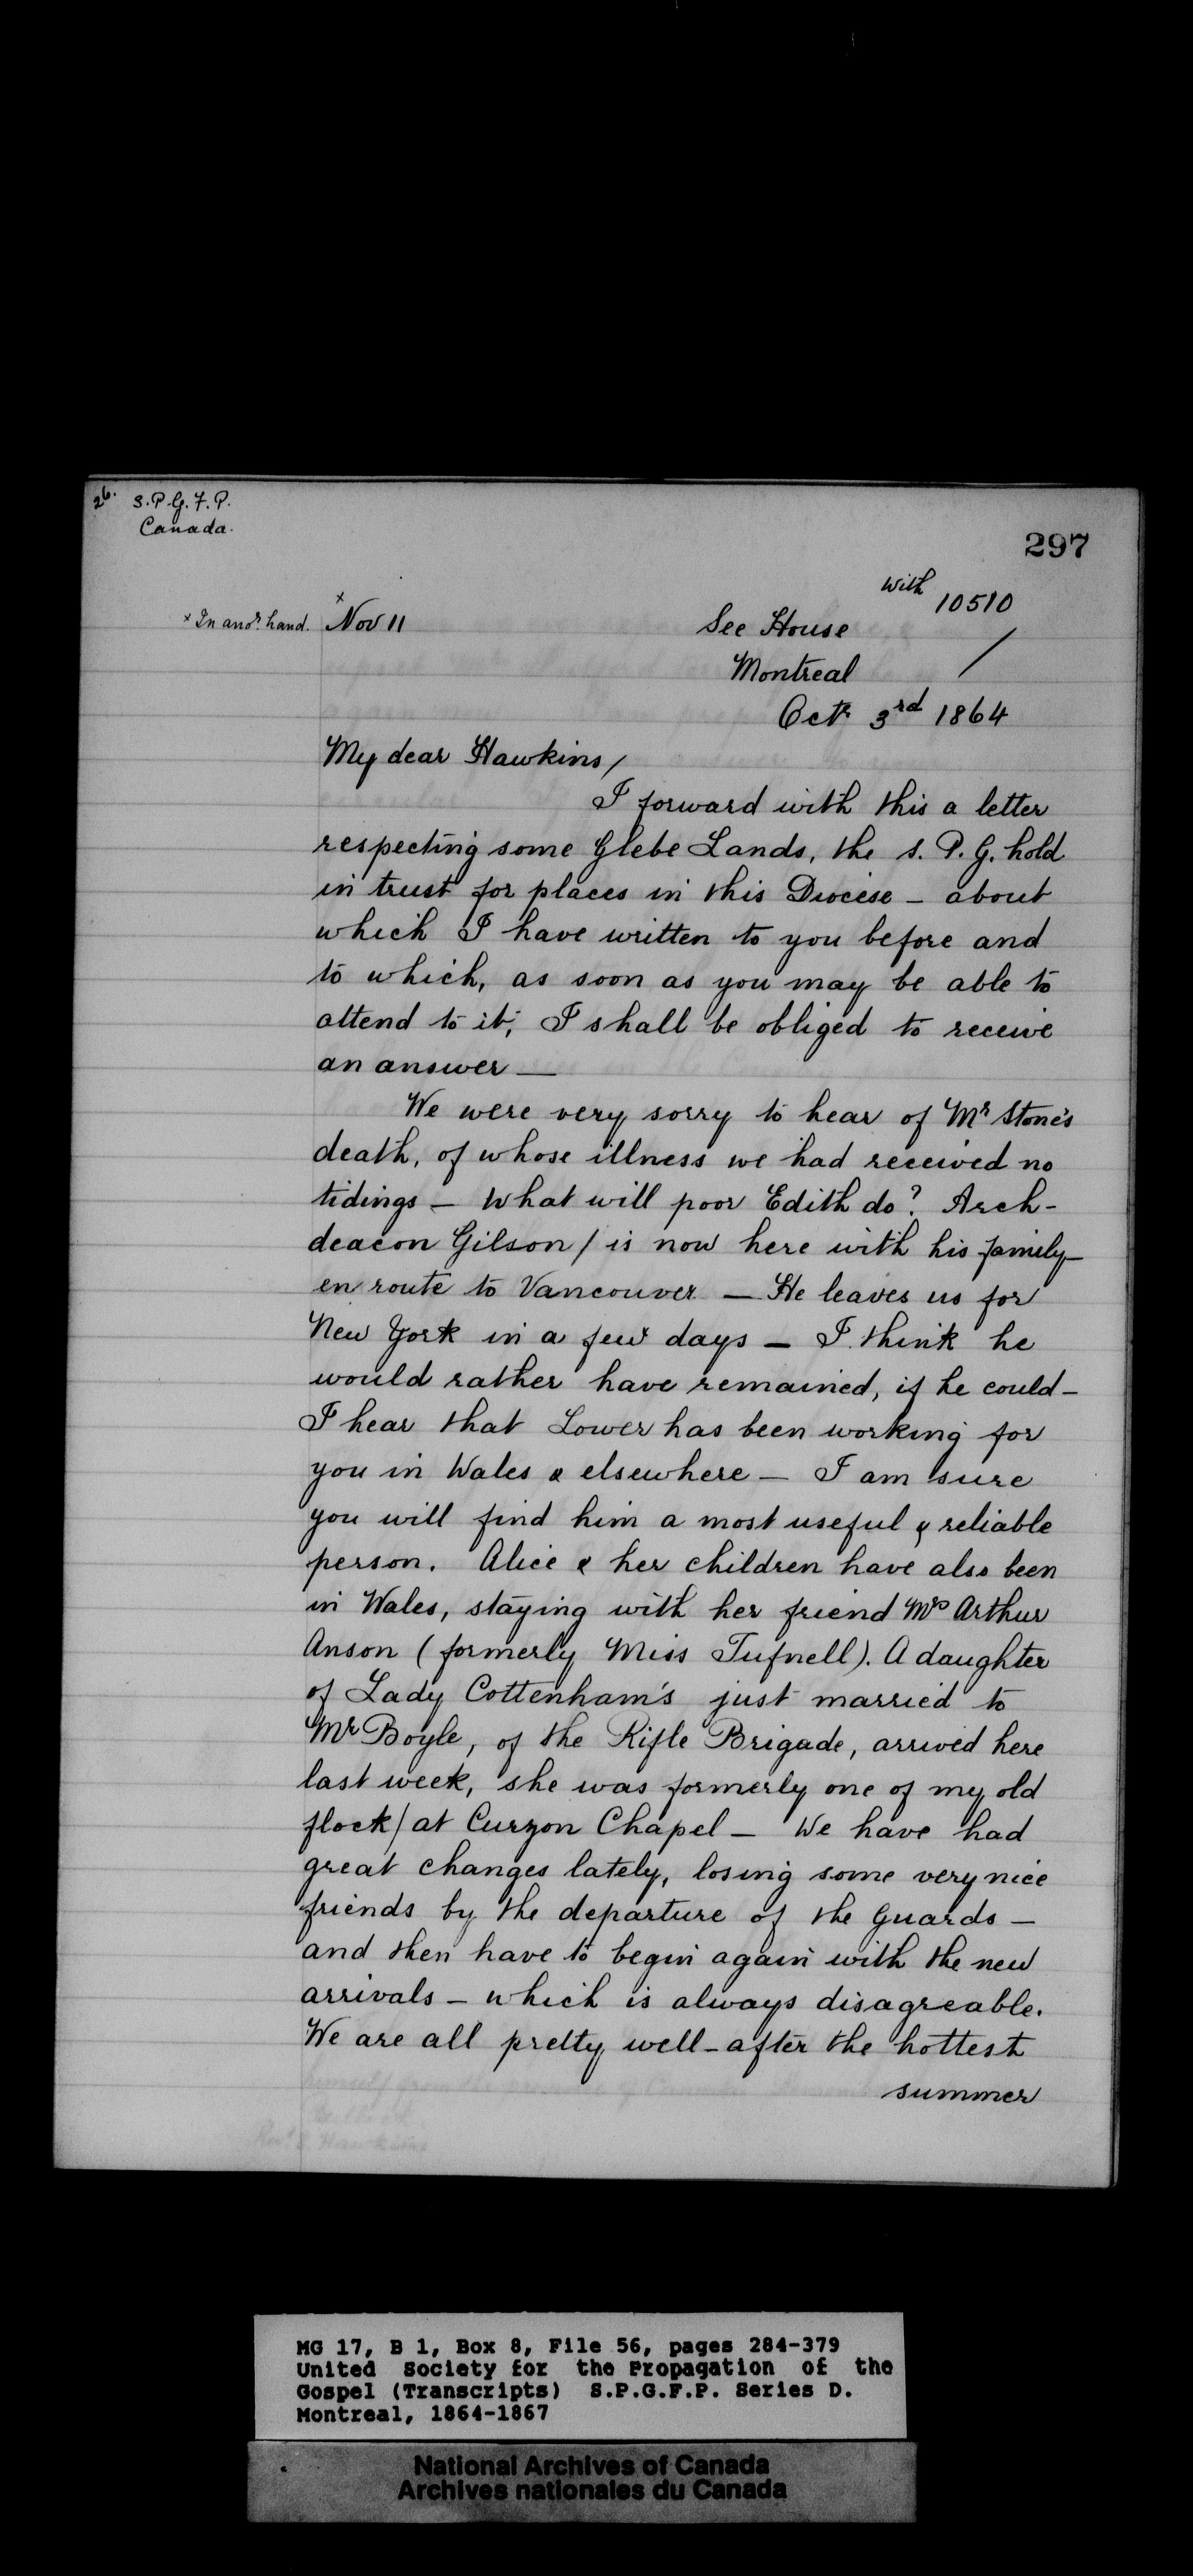 26. S.P.G.F.P.
Canada.
297
With
10510
× In anor. hand. × Nov 11
See House /
Montreal
Octr 3rd 1864
My dear Hawkins/
I forward with this a letter
respecting some Glebe Lands, the S. P. G. hold
in trust for places in this Diocese – about
which I have written to you before and
to which, as soon as you may be able to
attend to it, I shall be obliged to receive
an answer —
We were very sorry to hear of Mr Stone's
death, of whose illness we had received no
tidings – What will poor Edith do? Arch-
deacon Gilson/ is now here with his family –
en route to Vancouver – He leaves us for
New York in a few days – I think he
would rather have remained, if he could –
I hear that Lower has been working for
you in Wales & elsewhere – I am sure
you will find him a most useful & reliable
person. Alice & her children have also been
in Wales, staying with her friend Mrs Arthur
Anson (formerly Miss Tufnell). A daughter
of Lady Cottenham's just married to
Mr Boyle, of the Rifle Brigade, arrived here
last week, she was formerly one of my old
flock/ at Curzon Chapel – We have had
great changes lately, losing some very nice
friends by the departure of the Guards –
and then have to begin again with the new
arrivals – which is always disagreable.
We are all pretty well – after the hottest
summer
MG 17, B 1, Box 8, File 56, pages 284-379
United Society for the Propagation of the
Gospel (Transcripts) S.P.G.F.P. Series D.
Montreal, 1864-1867
National Archives of Canada
Archives nationales du Canada